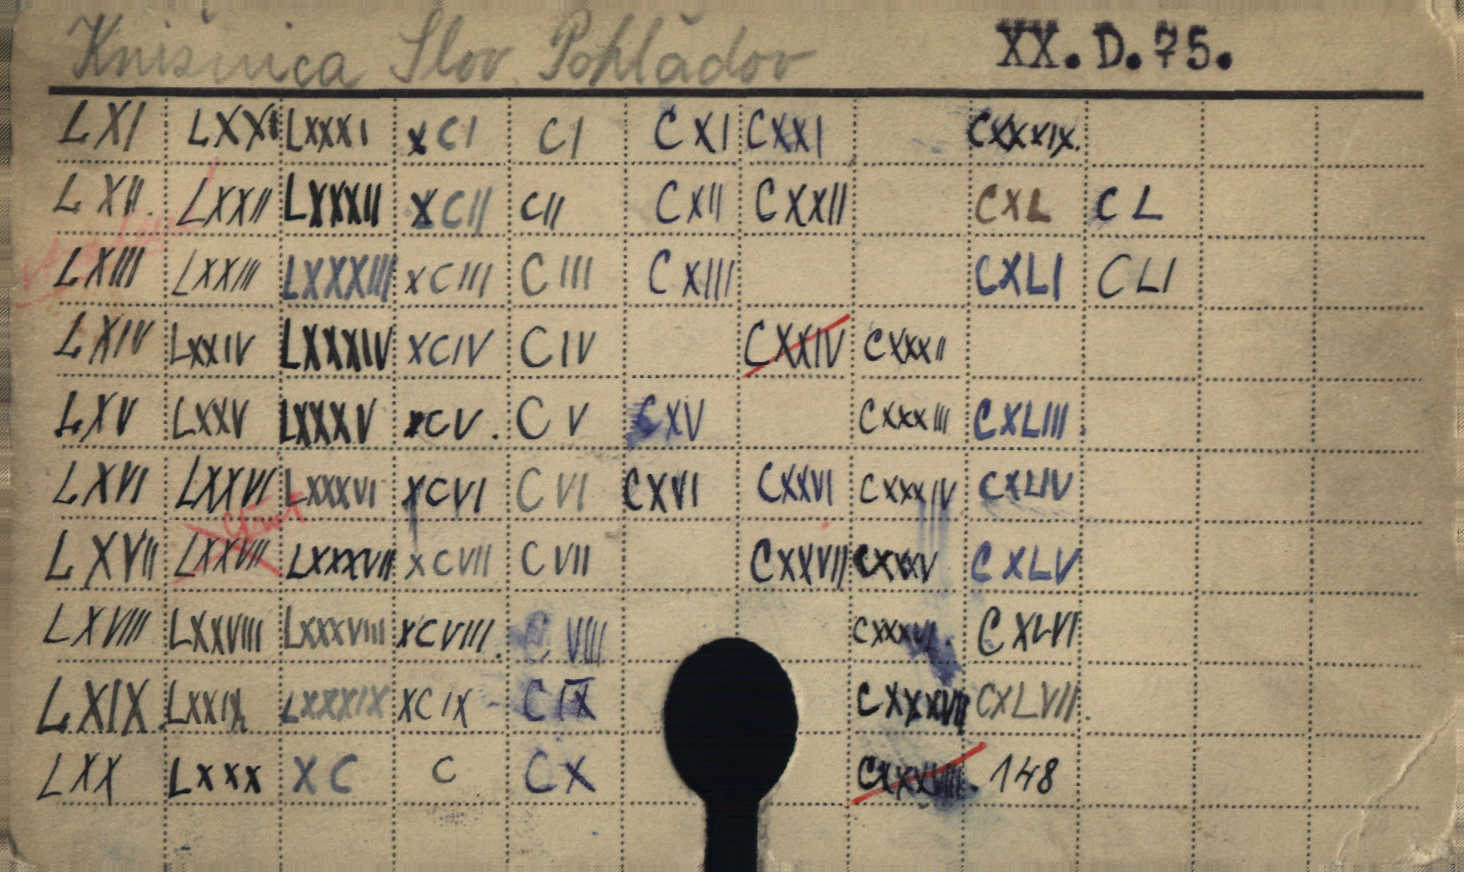 Knižnica Slov Pohľadov XX. D. 75.
LXI LXXI LXXXI XCI CI CXI CXXI CXXXIX.
LXII. LXXII LXXXII XCII CII CXII CXXII CXL CL
LXIII LXXIII LXXXIII XCIII CIII CXIII CXLI CLI
LXIV LXXIV LXXXIV XCIV CIV CXXIV CXXXII
LXV LXXV LXXXV XCV. CV CXV CXXXIII CXLIII.
LXVI LXXVI LXXXVI XCVI CVI CXVI CXXVI CXXXIV CXLIV
LXVII LXXVII LXXXVII XCVII CVII CXXVII CXXXV CXLV
LXVIII LXXVIII LXXXVIII XCVIII. CVIII CXXXVI. CXLVI
LXIX. LXXIX LXXXIX XCIX CIX CXXXVII CXLVII.
LXX LXXX XC C CX CXXXVIII. 148